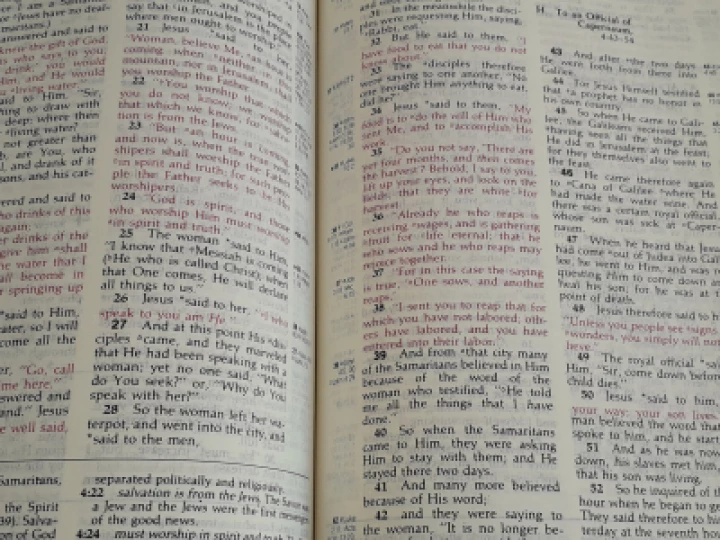 r I am a Samaritan
answered and said to
knew the gift of God,
who says to you,
drink,' you would
Him, and He would
living water."
said to Him, "Sir,
thing to draw with
deep; where then
living water?
not greater than
b, are You, who
l, and drank of it
sons, and his cat-
ered and said to
who drinks of this
again;
er drinks of the
give him shall
the water that I
ll become in
springing up
said to Him,
ater, so I will
come all the
er, "Go, call
me here."
swered and
and." Jesus
e well said,
Samaritans,
the Spirit
39). Salva-
on of God
say that in Jerusalem is the place
where men ought to worship."
21 Jesus said to
"Woman, believe Me,
coming when neither in this
mountain, nor in Jerusalem,
you worship the Father.
22 "You worship that which
you do not know; we worship
that which we know, for salva-
tion is from the Jews.
23 "But an hour is coming,
and now is, when the true wor-
shipers shall worship the Father
in spirit and truth; for such peo-
ple the Father seeks to be His
worshipers.
24 "God is spirit, and those
who worship Him must worship
in spirit and truth."
25 The woman said to Him,
"I know that Messiah is coming
(He who is called Christ); when
that One comes, He will declare
all things to us."
26 Jesus said to her, "I who
speak to you am He."
27 And at this point His dis-
ciples came, and they marveled
that He had been speaking with a
woman; yet no one said, "What
do You seek?" or, "Why do You
speak with her?"
28 So the woman left her wa-
terpot, and went into the city, and
said to the men,
separated politically and religiously.
4:22 salvation is from the Jews. The Savior was
a Jew and the Jews were the first messengers
of the good news.
4:24 must worship in spirit and truth.
31 In the meanwhile the disci-
ples were requesting Him, saying,
"Rabbi, eat."
32 But He said to them, "I
have food to eat that you do not
know about."
33 The disciples therefore
were saying to one another, "No
one brought Him anything to eat,
did he?"
34 Jesus said to them, "My
food is to do the will of Him who
sent Me, and to accomplish His
work.
35 "Do you not say, 'There are
yet four months, and then comes
the harvest'? Behold, I say to you,
lift up your eyes, and look on the
fields, that they are white for
harvest.
36 "Already he who reaps is
receiving wages, and is gathering
fruit for life eternal; that he
who sows and he who reaps may
rejoice together.
37 "For in this case the saying
is true, 'One sows, and another
reaps.'
38 "I sent you to reap that for
which you have not labored; oth-
ers have labored, and you have
entered into their labor."
39 And from that city many
of the Samaritans believed in Him
because of the word of the
woman who testified, "He told
me all the things that I have
done."
40 So when the Samaritans
came to Him, they were asking
Him to stay with them; and He
stayed there two days.
41 And many more believed
because of His word;
42 and they were saying to
the woman, "It is no longer be-
H. To an Official of
Capernaum,
4:43-54
43 And after the two days
He went forth from there into
Galilee.
44 For Jesus Himself testified
that a prophet has no honor in
his own country.
45 So when He came to Gali-
lee, the Galileans received Him,
having seen all the things that
He did in Jerusalem at the feast;
for they themselves also went to
the feast.
46 He came therefore again
to Cana of Galilee where He
had made the water wine. And
there was a certain royal official,
whose son was sick at Caper-
naum.
47 When he heard that Jesus
had come out of Judea into Gali-
lee, he went to Him, and was re-
questing Him to come down and
heal his son; for he was at the
point of death.
48 Jesus therefore said to h
"Unless you people see signs
wonders, you simply will not
lieve."
49 The royal official sa
Him, "Sir, come down before
child dies."
50 Jesus said to him,
your way; your son lives.
man believed the word that
spoke to him, and he start
51 And as he was now
down, his slaves met him,
that his son was living.
52 So he inquired of th
hour when he began to ge
They said therefore to hi
terday at the seventh hou